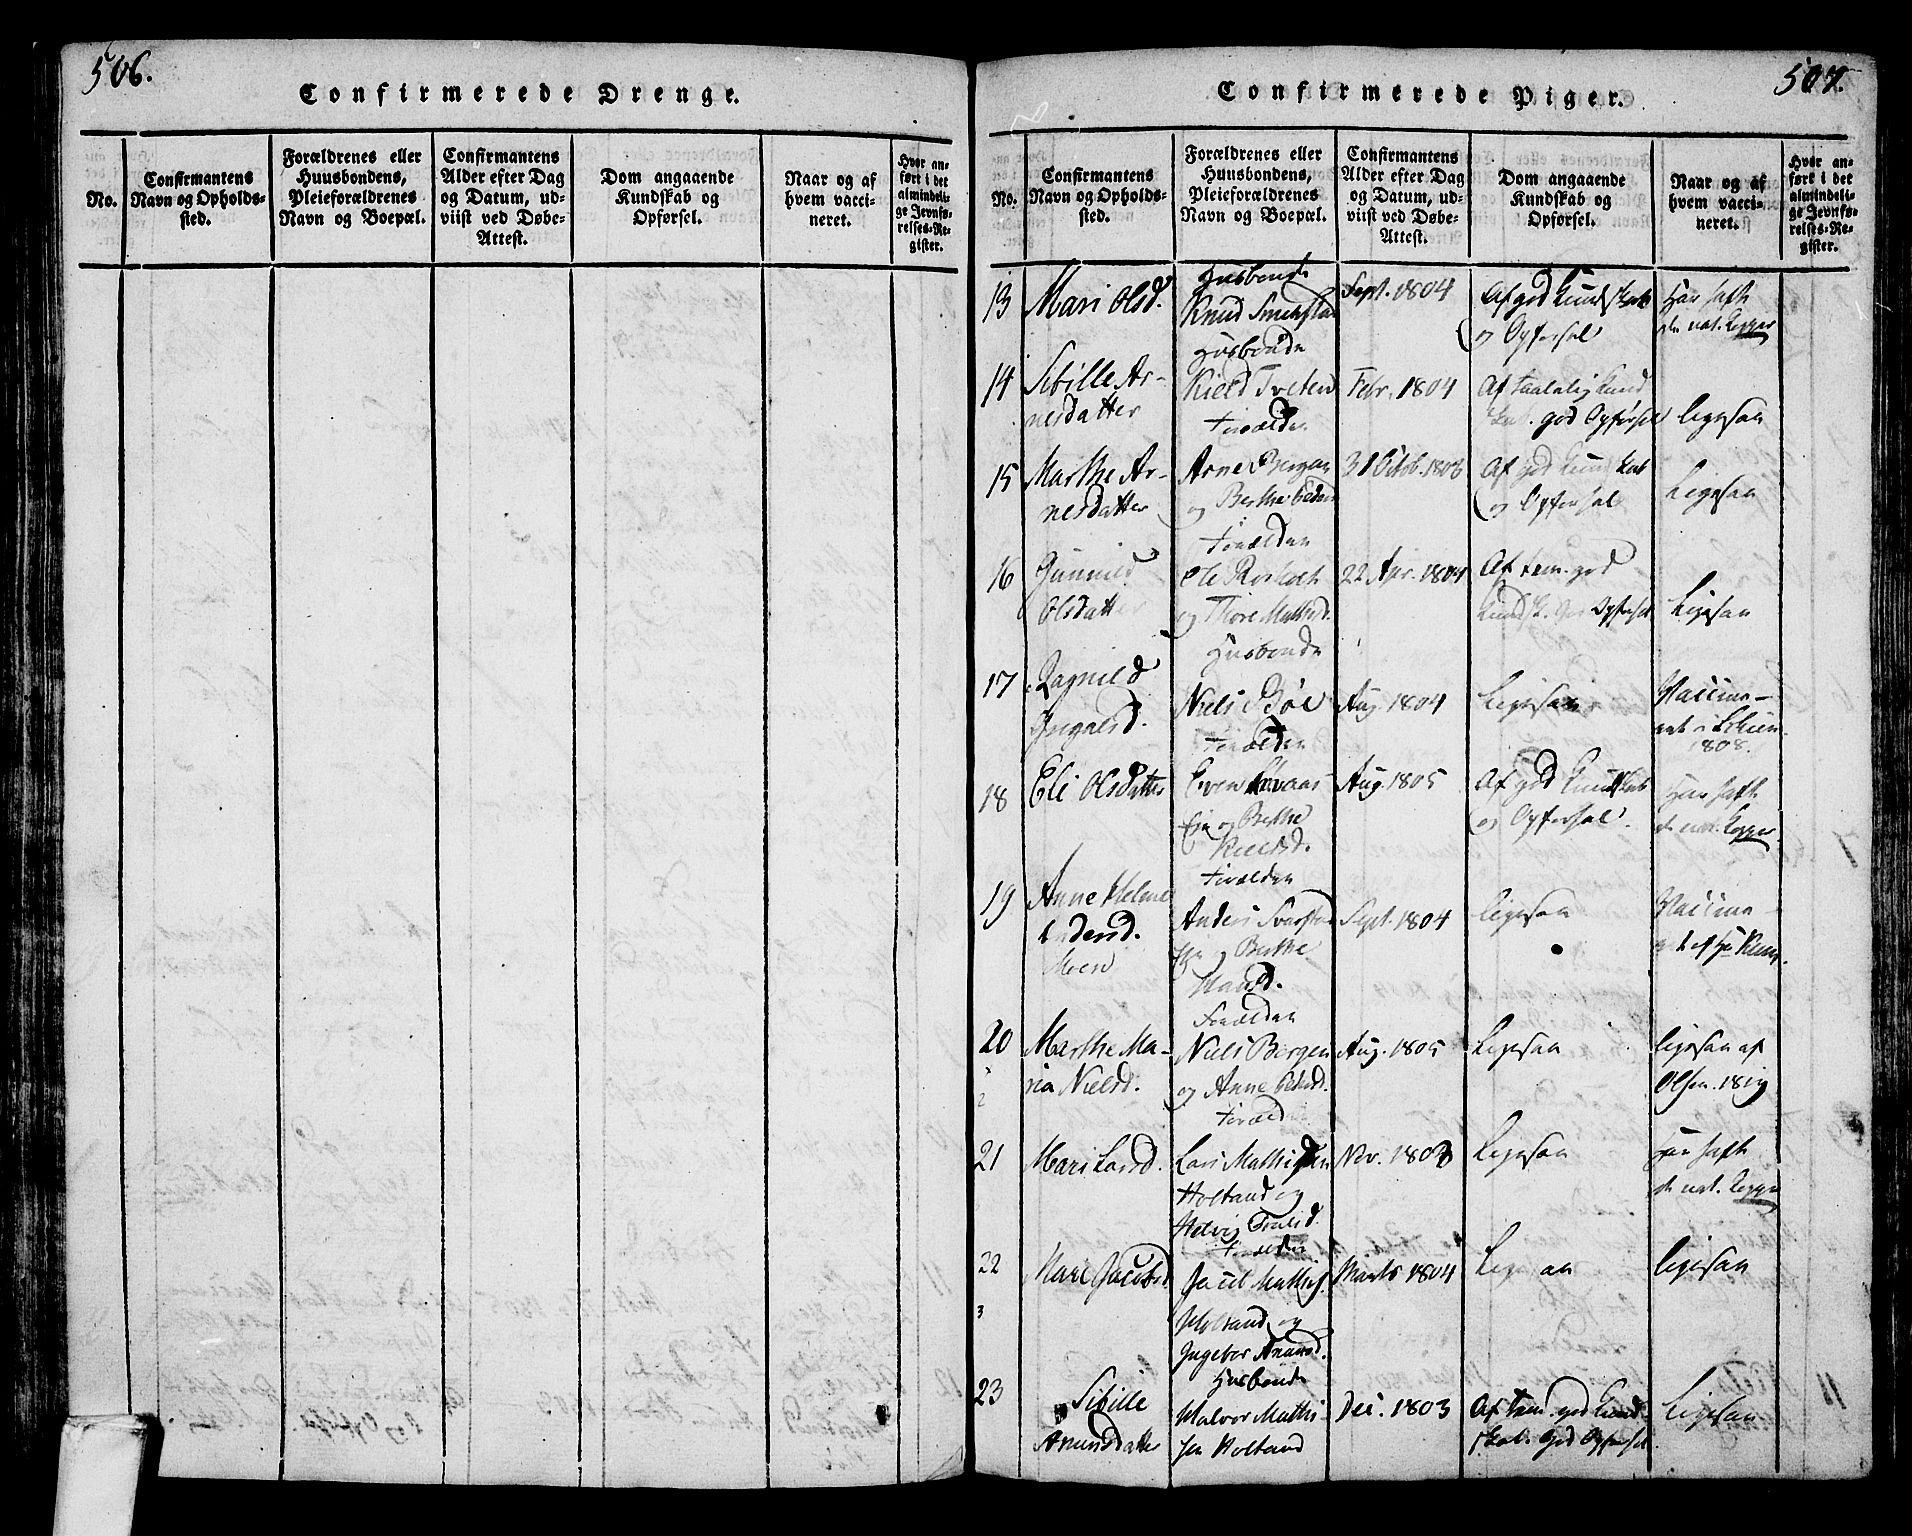 506.
Confirmerede Drenge.
No.
Confirmantens
Navn og Opholds-
sted.
Forældrenes eller
Huusbondens,
Pleieforældrenes
Navn og Boepæl.
Confirmantens
Alder efter Dag
og Datum, ud-
viist ved Døbe-
Attest.
Dom angaaende
Kundskab og
Opførsel.
Naar og af
hvem vacci-
neret.
Hvor an-
ført i det
almindeli-
ge Jevnfø-
relses-Re-
gister.
507.
Confirmerede Piger.
No.
Confirmantens
Navn og Opholds-
sted.
Forældrenes eller
Huusbondens,
Pleieforældrenes
Navn og Boepæl.
Confirmantens
Alder efter Dag
og Datum, ud-
viist ved Døbe-
Attest.
Dom angaaende
Kundskab og
Opførsel.
Naar og af
hvem vacci-
neret.
Hvor an-
ført i det
almindeli-
ge Jevnfø-
relses-Re-
gister.
13
Mari Olsd.
Husbonde
Knud
Sept. 1804
Af god Kundskab
og Opførsel
Har hafte
de nat. Kopper
14
Sibille Ar-
nesdatter
Husbonde
Kield Tveten
Febr. 1804
Af taalelig Kund
skab. god Opførsel
ligesaa
15
Marthe Ar-
nesdatter
Forældre
Arne Bergen
og Berthe
31 Octob. 1803
Af god Kundskab
og Opførsel
Ligesaa
16
Gunnild
Olsdatter
Forældre
Ole
og Thore Mathisd.
22 Apr. 1804
Af tem. god
Kundsk. god Opførsel
Ligesaa
17
Ragnild
Husbonde
Niels Bøe
Aug. 1804
Ligesaa
Vaccine-
ret i Schien
1808.
18
Eli Olsdatter
Forældre
Even
Eje og Berthe
Kieldsd.
Aug. 1805
Af god Kundskab
og Opførsel.
Har hafte
de nat. Kopper
19
Anne Helene
Andersd.
Moen
Forældre
Anders
Eje og Berthe
Hansd.
Sept. 1804
ligesaa
Vaccine-
20
Marthe Ma-
ria Nielsd.
Forældre
Niels Bergen
og Anne
Aug. 1805
Ligesaa
ligesaa af
Olsen.
21
Mari Larsd.
Forældre
Lars Mathisen
Holtand og
Helvig
Nov. 1803
Ligesaa
Har hafte
de nat. Kopper
22
Mari Jacobsd
Forældre
Jacob Mathis.
Holtand og
Ingebor Anundd.
Marts 1804
Ligesaa
ligesaa
23
Sibille
Anunsdatter
Husbonde
Halvor Mathi-
sen Holtand
Dec. 1803
Af tem. god Kund-
skab. god Opførsel
Ligesaa